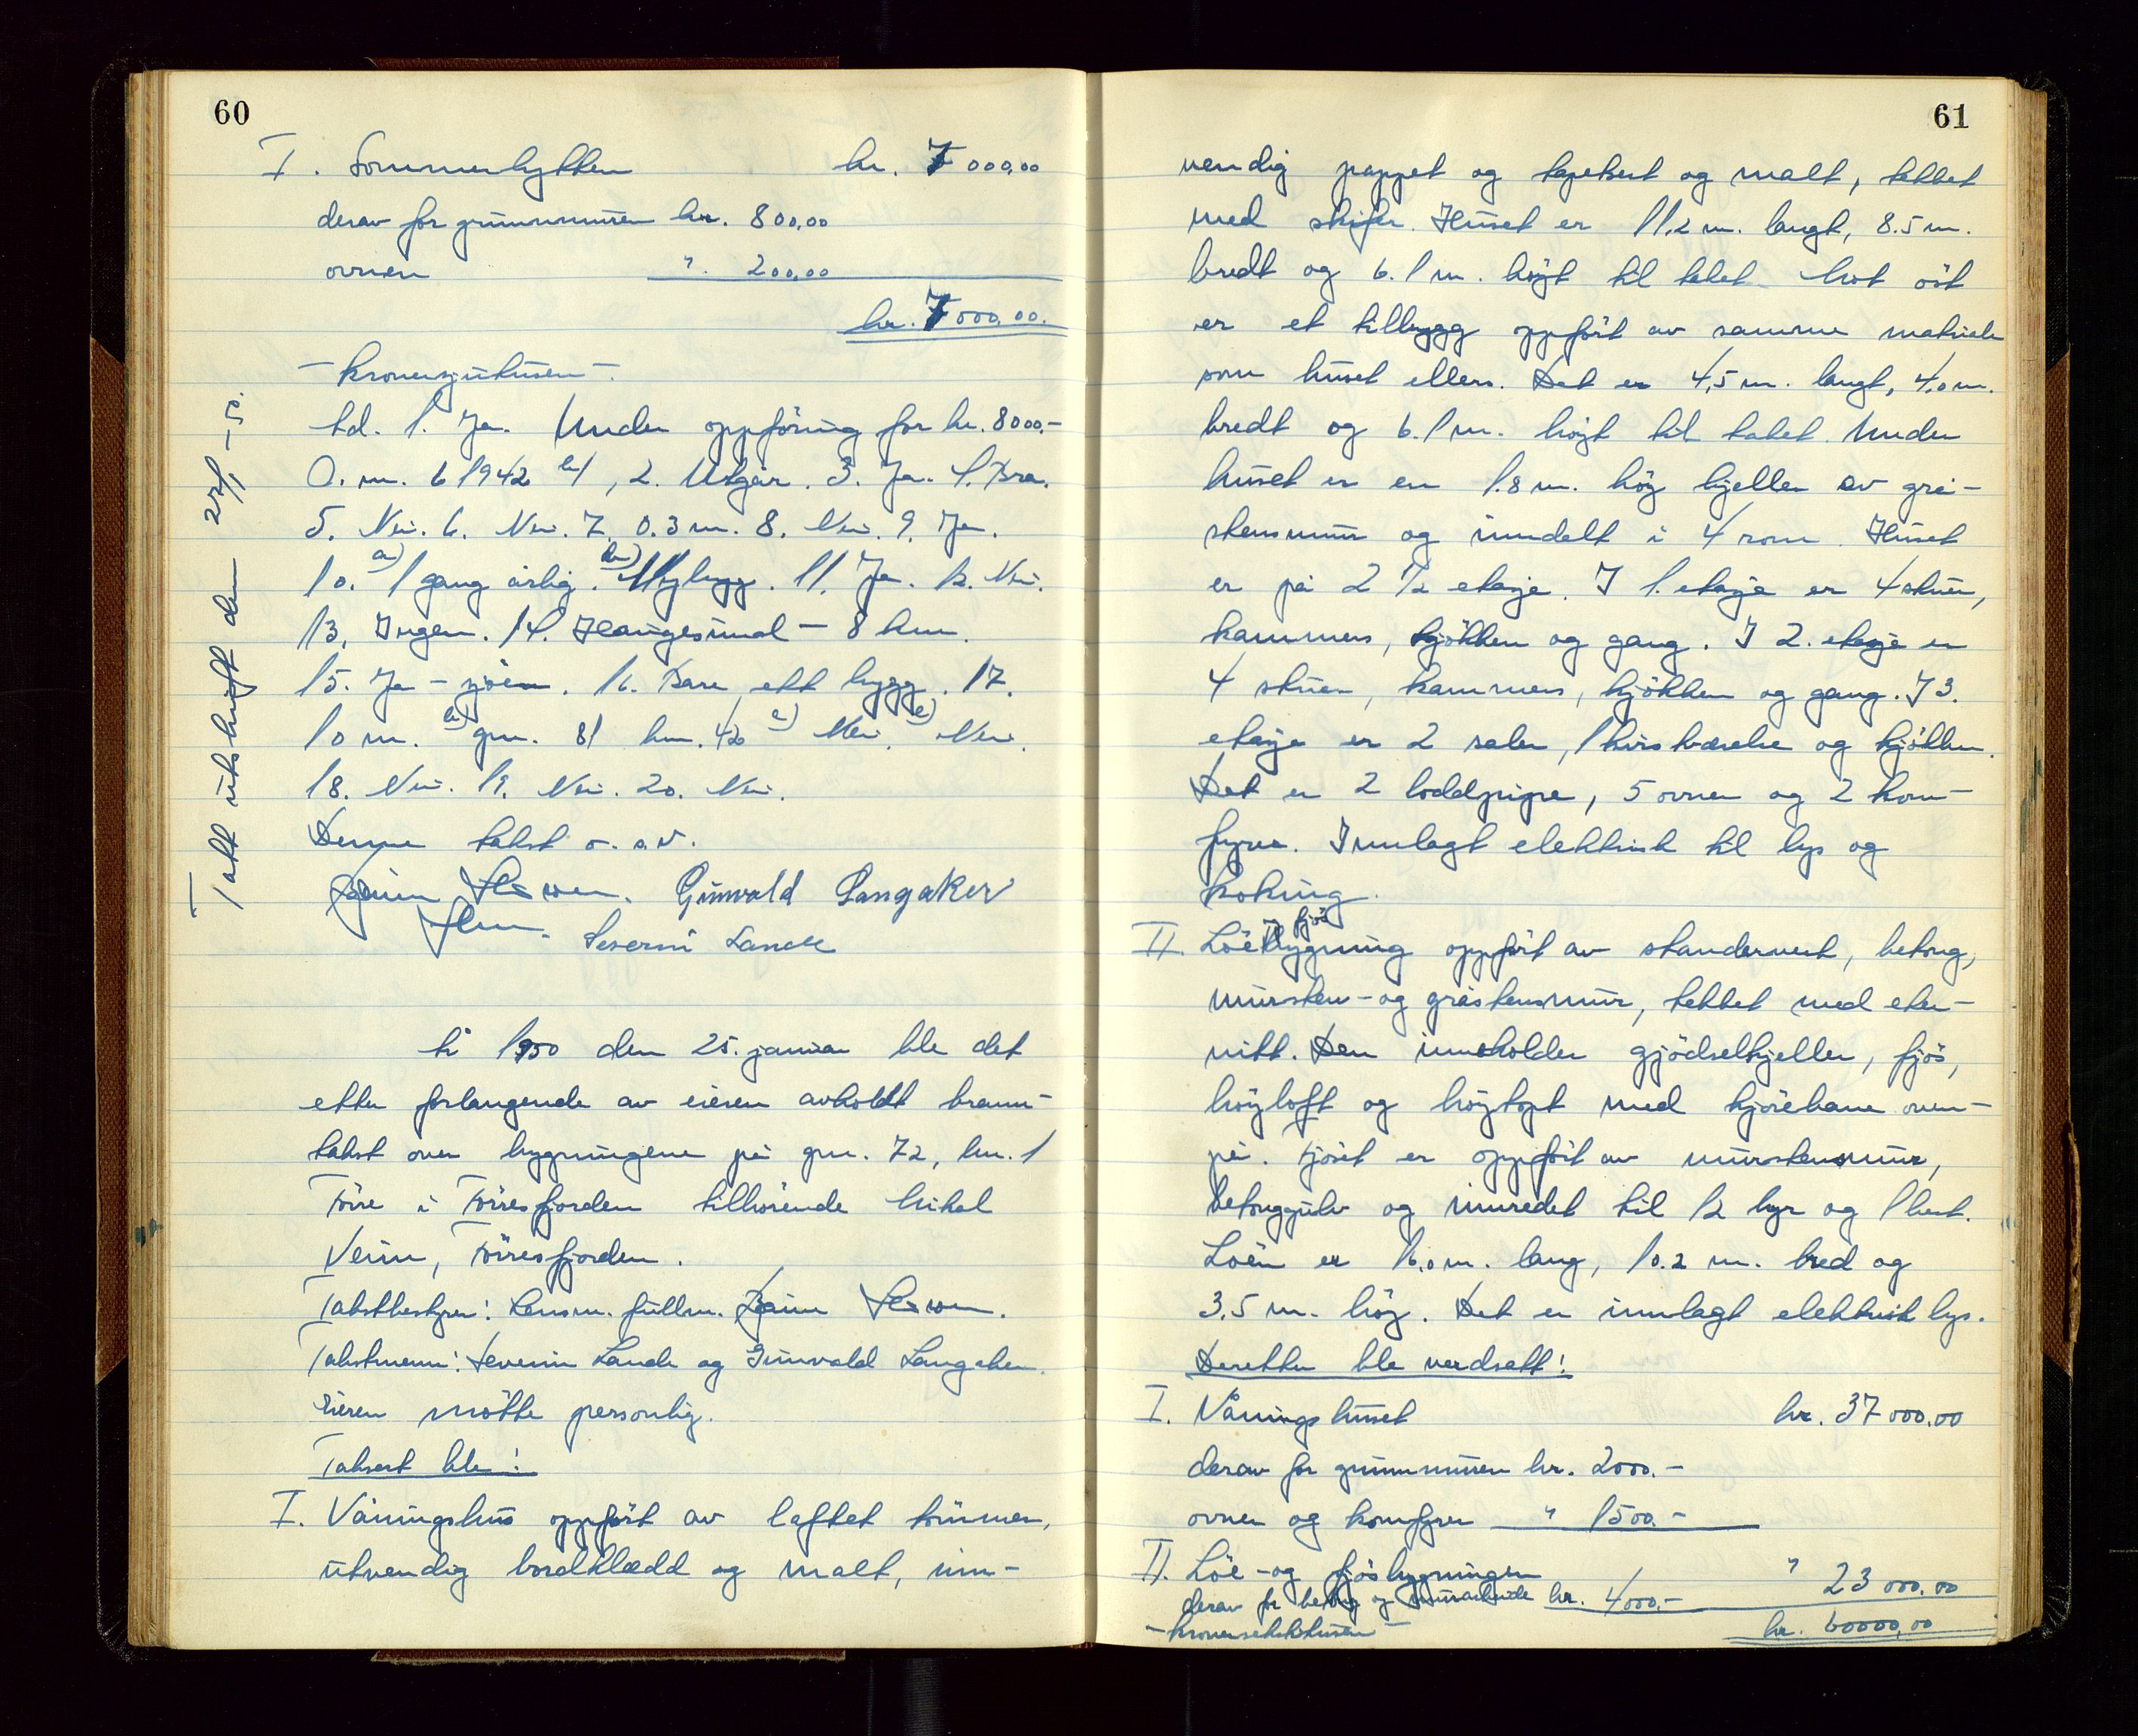 60
I. Sommerhytten kr. 7000,00
derav for grunnmuren kr. 800,00
ovnen " 200,00
kr. 7000,00.
- kronersjutusen -.
td. 1. Ja. Under oppföring for kr. 8000.-
O. m. 6/1942 b/, 2. Utgår. 3. Ja. 4. Bra.
5. Nei. 6. Nei. 7. 0.3 m. 8. Nei. 9. Ja.
10. a) 1 gang årlig. b) Nybygg. 11. Ja. 12. Nei.
13. Ingen. 14. Haugesund - 8 km.
15. Ja - sjöen. 16. Bare ett bygg. 17.
10 m. b) gnr. 81 bnr. 42 c) Nei. e) Nei.
18. Nei. 19. Nei. 20. Nei.
Denne takst o. s. v.
Gunvald Langaker
Severin Lande
Tatt utskrift den 27/1 - 50.
År 1950 den 25. januar ble det
etter forlangende av eieren avholdt brann-
takst over bygningene på gnr. 72, bnr. 1
Förre i Förresfjorden tilhörende Mikal
Veim, Förresfjorden.
Takstbestyrer: Lensm. fullm.
Takstmenn: Severin Lande og Gunvald Langaker.
Eieren mötte personlig.
Taksert ble:
I. Våningshus oppfört av laftet tömmer,
utvendig bordklædd og malt, inn-
61
vendig pappet og tapetsert og malt, tekket
med skifer. Huset er 11,2 m. langt, 8.5 m.
bredt og 6.1 m. högt til taket. Mot öst
er et tilbygg oppfört av samme matriale
som huset ellers. Det er 4,5 m. langt, 4,0 m.
bredt og 6.1 m. högt til taket. Under
huset er en 1.8 m. hög kjeller av grå-
stensmur og inndelt i 4 rom. Huset
er på 2 1/2 etasje. I 1. etasje er 4 stuer,
kammers, kjökken og gang. I 2. etasje er
4 stuer, kammers, kjökken og gang. I 3.
etasje er 2 saler, 1 kvistværelse og kjökken.
Det er 2 loddpipe, 5 ovner og 2 kom-
fyrer. Innlagt elektrisk til lys og
koking.
II. Löe og fjös bygning oppfört av standerverk, betong,
mursten- og gråstensmur, tekket med eter-
nitt. Den inneholder gjödselkjeller, fjös,
höyloft og höytopt med kjörebane oven-
på. Fjöset er oppfört av murstensmur,
betonggulv og innredet til 12 kyr og 1 hest.
Löen er 16,0 m. lang, 10.2 m. bred og
3.5 m. hög. Det er innlagt elektrisk lys.
Deretter ble verdsatt:
I. Våningshuset kr. 37000,00
derav for grunnmuren kr. 2000.-
ovner og komfyrer " 1500.-
II. Löe- og fjösbygningen " 23000.00
derav for betong og murarbeide kr. 4000.-
- kronersekstitusen - kr. 60000,00